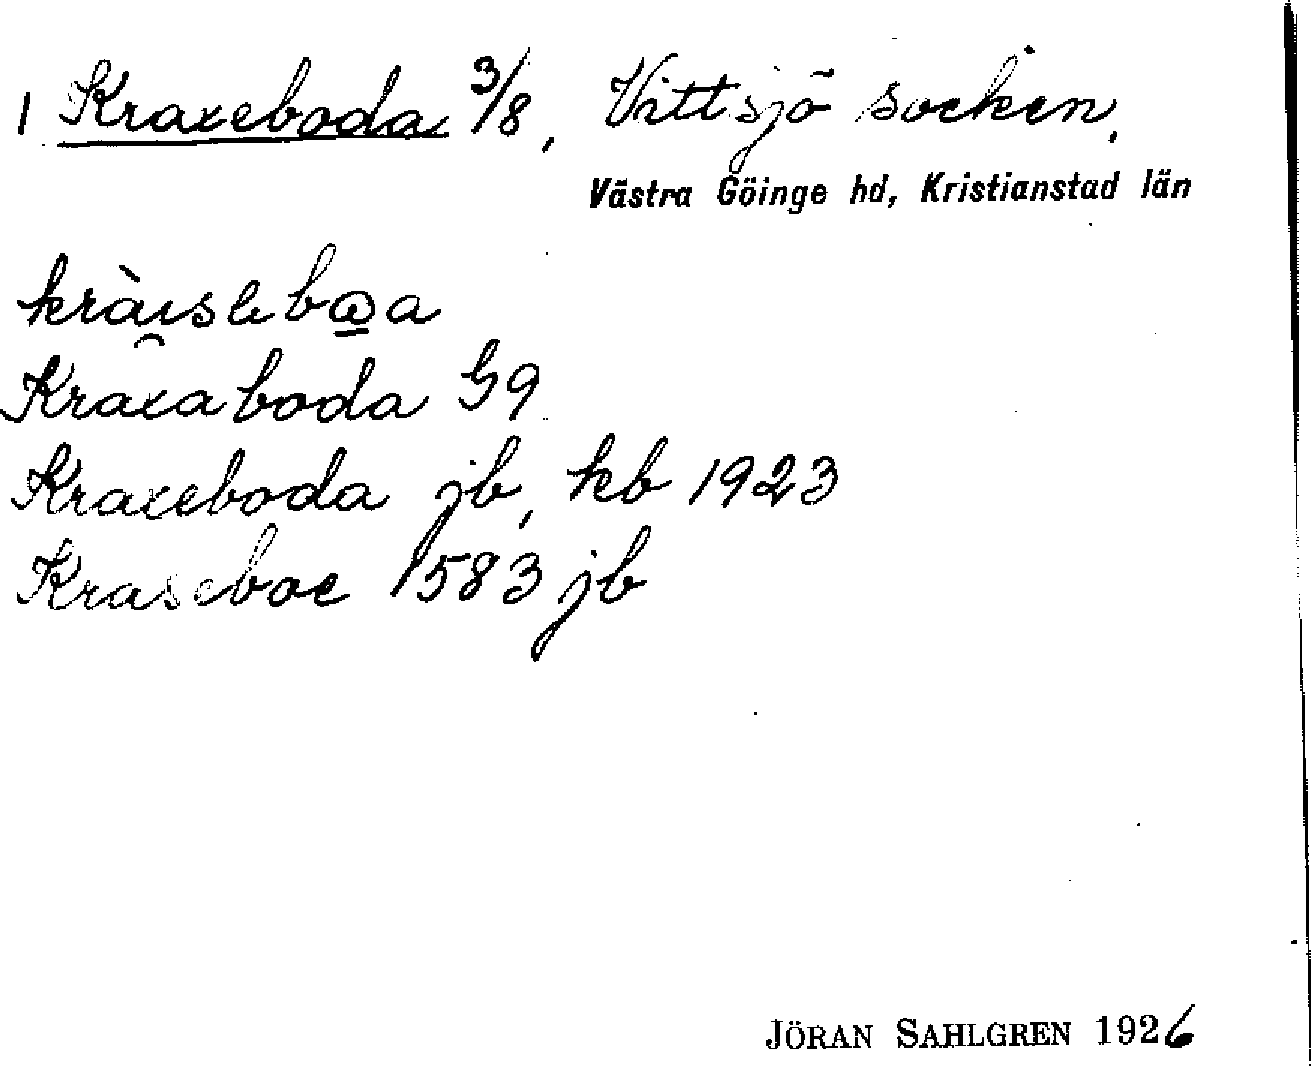 1 Kraxeboda 3/8, Vittsjö socken,
Västra Göinge hd, Kristianstad län
Kraxaboda G9
Kraxeboda jb, kb 1923
Kraseboe 1583 jb
JÖRAN SAHLGREN 1926